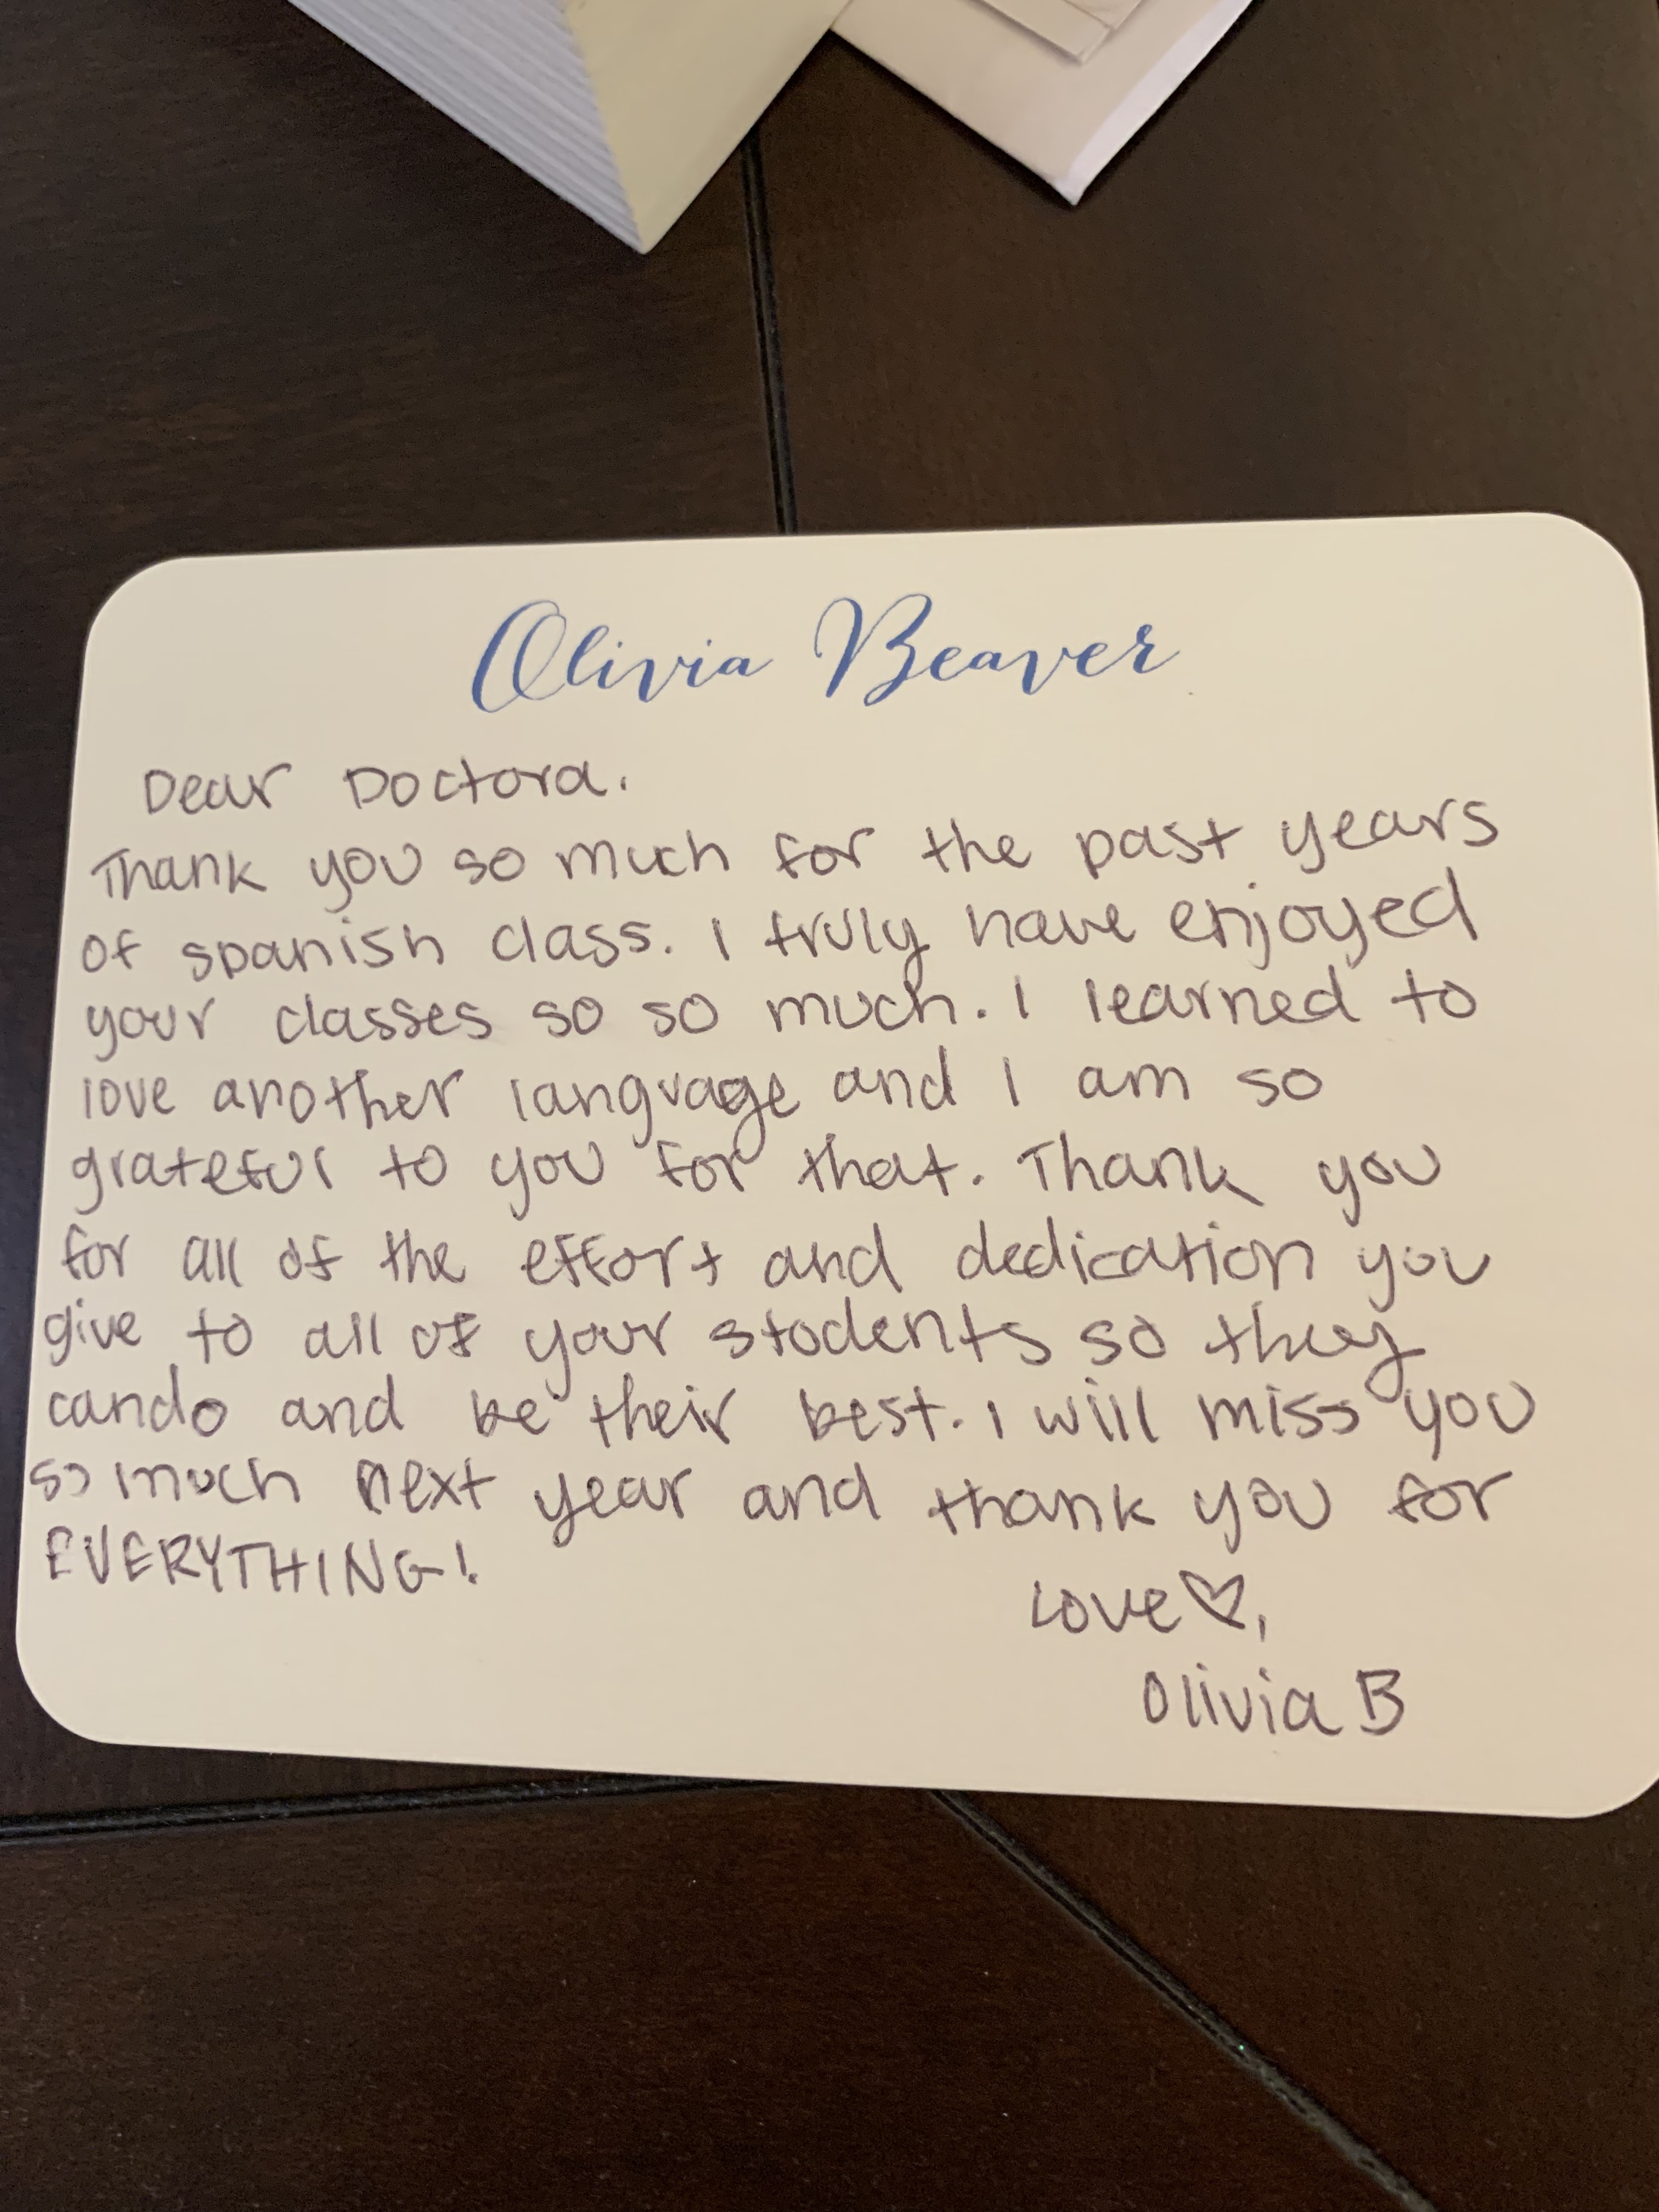 Olivia Beaver
Dear Doctora.
Thank you so much for the past years
of spanish class. I truly have enjoyed
your classes so so much. I learned to
love another language and I am so
grateful to you for that. Thank you
for all of the effort and dedication you
give to all of your students so they
can do and be their best. I will miss you
so much next year and thank you for
EVERYTHING!
Love♡,
Olivia B